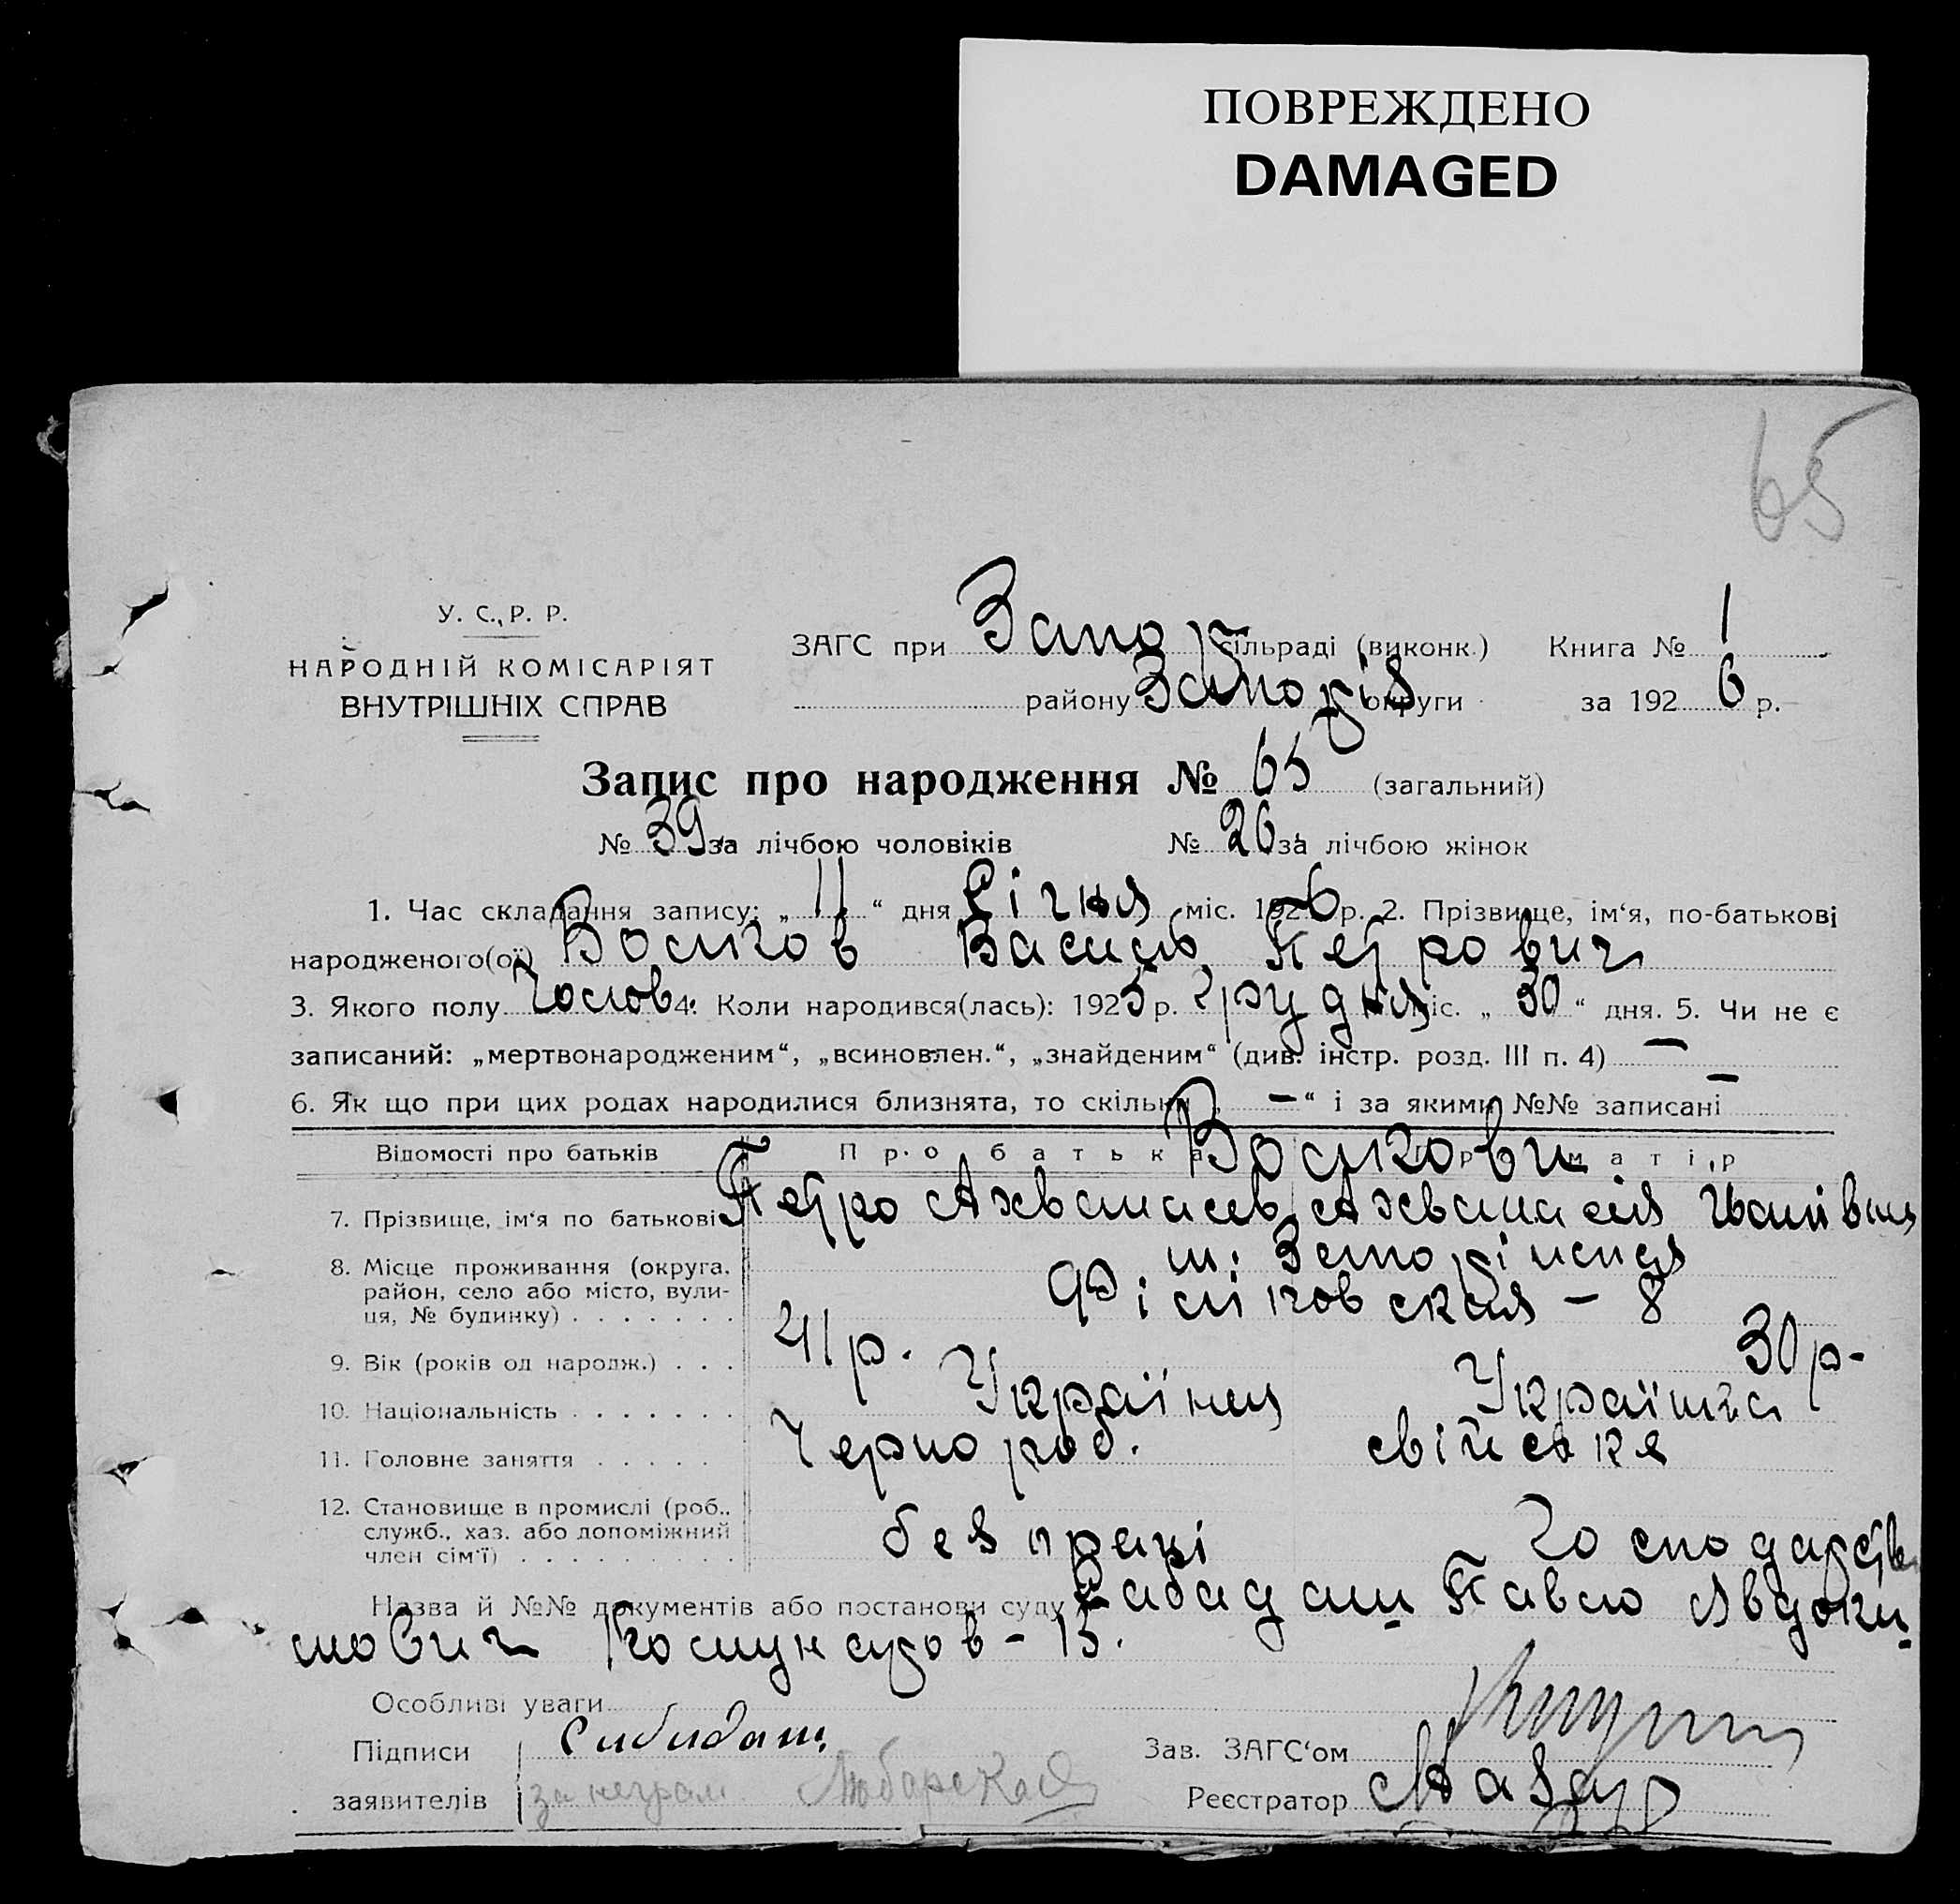 ПОВРЕЖДЕНО
DAMAGED
65
У. С. Р. Р.
НАРОДНІЙ КОМІСАРІЯТ
ВНУТРІШНІХ СПРАВ
ЗАГС при Запор сільраді (виконк.) Книга № 1
району Запоріз округи за 1926 р.
Запис про народження № 65 (загальний)
№ 39 за лічбою чоловіків № 26 за лічбою жінок
1. Час складання запису: „ 11 “ дня Січня міс. 1926 р. 2. Прізвище, ім‘я, по-батькові
народженого(ої) Волков Василь Петрович
3. Якого полу Чолов 4. Коли народився(лась): 1925 р. Грудня міс. „ 30 “ дня. 5. Чи не є
записаний: „мертвонародженим“, „всиновлен.“, „знайденим“ (див. інстр. розд. III п. 4) —
6. Як що при цих родах народилися близнята, то скільки „ — “ і за якими №№ записані —
Відомості про батьків Про батька Про матір
Волкови
7. Прізвище, ім‘я по батькові Петро Ахванасев Ахванасія Іванівна
8. Місце проживання (округа, район, село або місто, вули-ця, № будинку) . . . . . . . м. Запоріжжя
Філіковская — 8
9. Вік (років од народж.) . . . 41 р. 30 р-
10. Національність . . . . . . . Українец Українка
11. Головне заняття . . . . . Чернороб. свійська
12. Становище в промислі (роб., служб., хаз. або допоміжний член сім‘ї) . . . . . . . . . без праці господарств
Назва й №№ документів або постанови суду Сабадаш Павло Явдоки-
мович Комунаров - 15.
Особливі уваги
Підписи Сабадаш Зав. ЗАГС‘ом
заявителів за неграм Любарская Реєстратор Мазур